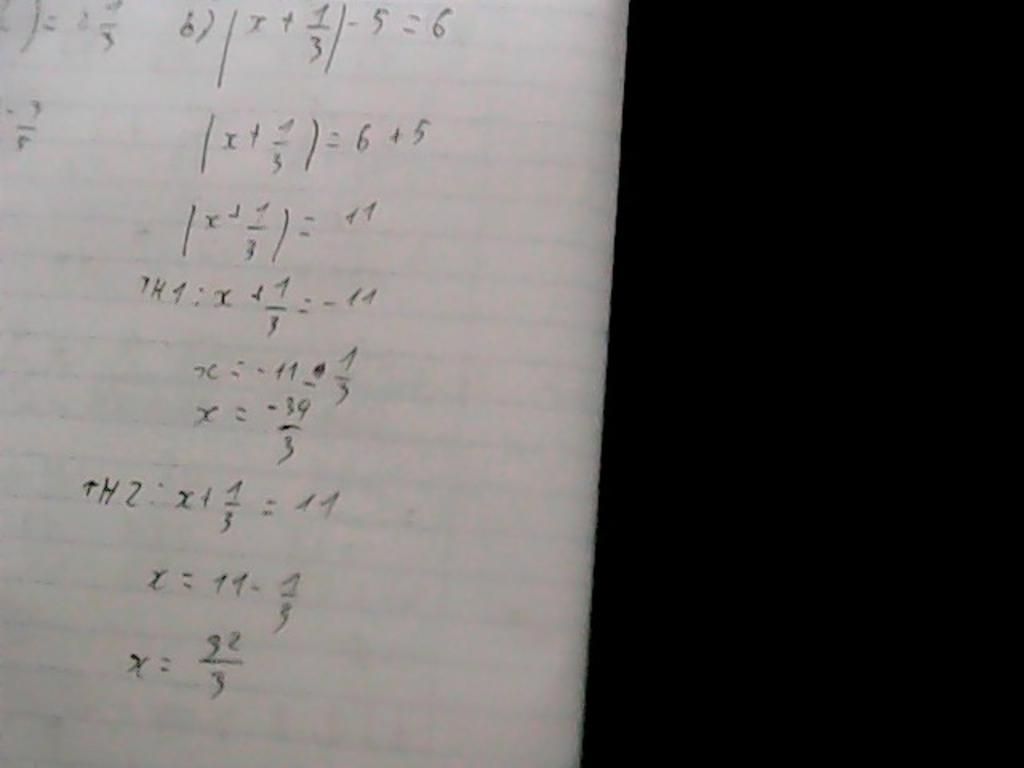 b) |x + 1/3| - 5 = 6
|x + 1/3| = 6 + 5
|x + 1/3| = 11
TH1: x + 1/3 = -11
x = -11 - 1/3
x = -34/3
TH2: x + 1/3 = 11
x = 11 - 1/3
x = 32/3